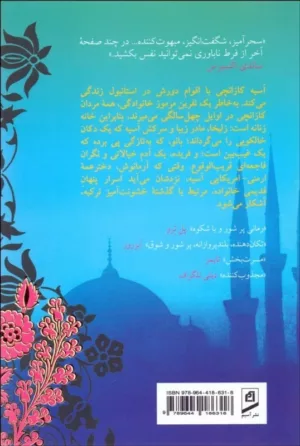 «سحرآمیز، شگفت‌انگیز، مبهوت‌کننده... در چند صفحهٔ
آخر از فرط ناباوری نمی‌توانید نفس بکشید.»
آسیه کازانچی با اقوام دورش در استانبول زندگی
می‌کند. به‌خاطر یک نفرین مرموز خانوادگی، همهٔ مردان
کازانچی در اوایل چهل‌سالگی می‌میرند. بنابراین خانه
زنانه است: زلیخا، مادر زیبا و سرکش آسیه که یک دکان
خالکوبی را می‌گرداند؛ بانو، که به‌تازگی پی برده که
یک غیب‌بین است؛ و فریده، یک آدم خیالاتی و نگران
فاجعه‌ای قریب‌الوقوع. وقتی که آرمانوش، دخترعمهٔ
ارمنی آمریکایی آسیه، نزدشان می‌آید اسرار پنهان
قدیمی خانواده، مرتبط با گذشتهٔ خشونت‌آمیز ترکیه،
آشکار می‌شود.
«رمانی پر شور و با شکوه»
«تکان‌دهنده، بلندپروازانه، پر شور و شوق»
«مسرت‌بخش»
«مجذوب‌کننده»
ISBN: 978-964-418-631-8
9 789644 186318